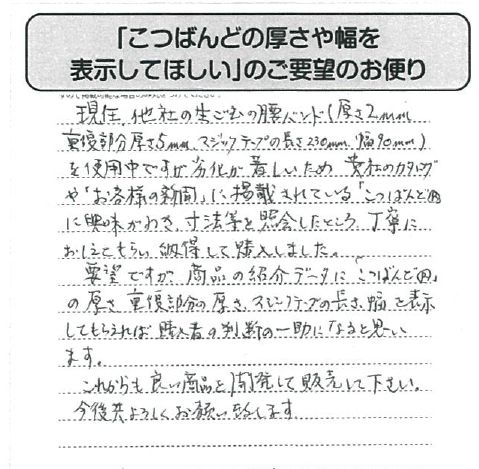 「こつばんどの厚さや幅を
表示してほしい」のご要望のお便り
現在、他社の生ごむの腰バンド(厚さ2mm
重複部分厚さ5mm、マジックテープの長さ230mm、幅90mm)
を使用中ですが劣化が著しいため 貴社のカタログ
や「お客様の新聞」に掲載されている「こつばんど四」
に興味がわき、寸法等を照会したところ、丁寧に
おしえてもらい納得して購入しました。
要望ですが、商品の紹介データに「こつばんど四」
の厚さ、重複部分の厚さ、マジックテープの長さ、幅を表示
してもらえれば購入者の判断の一助になると思い
ます。
これからも良い商品を開発して販売して下さい。
今後共よろしくお願い致します